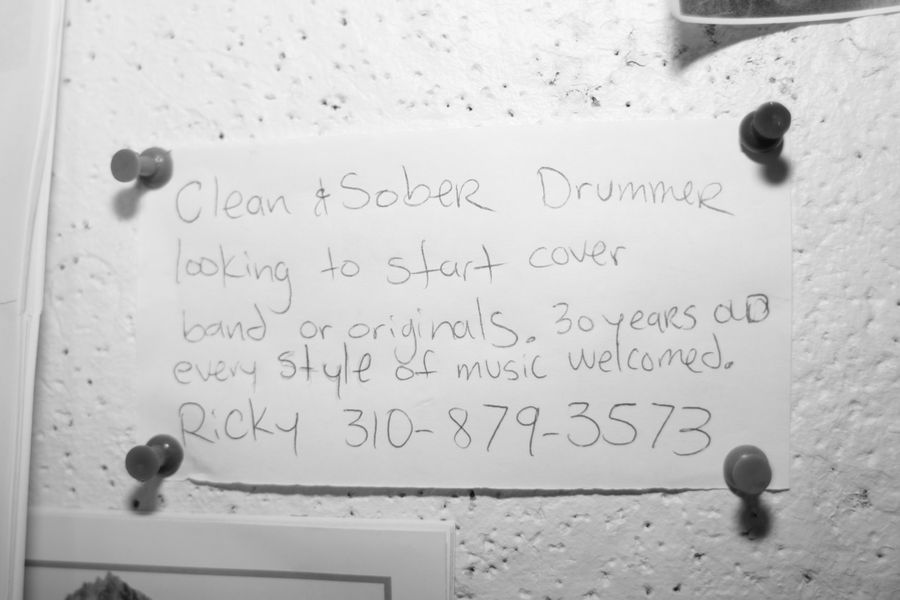 Clean & Sober Drummer
looking to start cover
band or originals. 30 years old
every style of music welcomed.
Ricky 310-879-3573